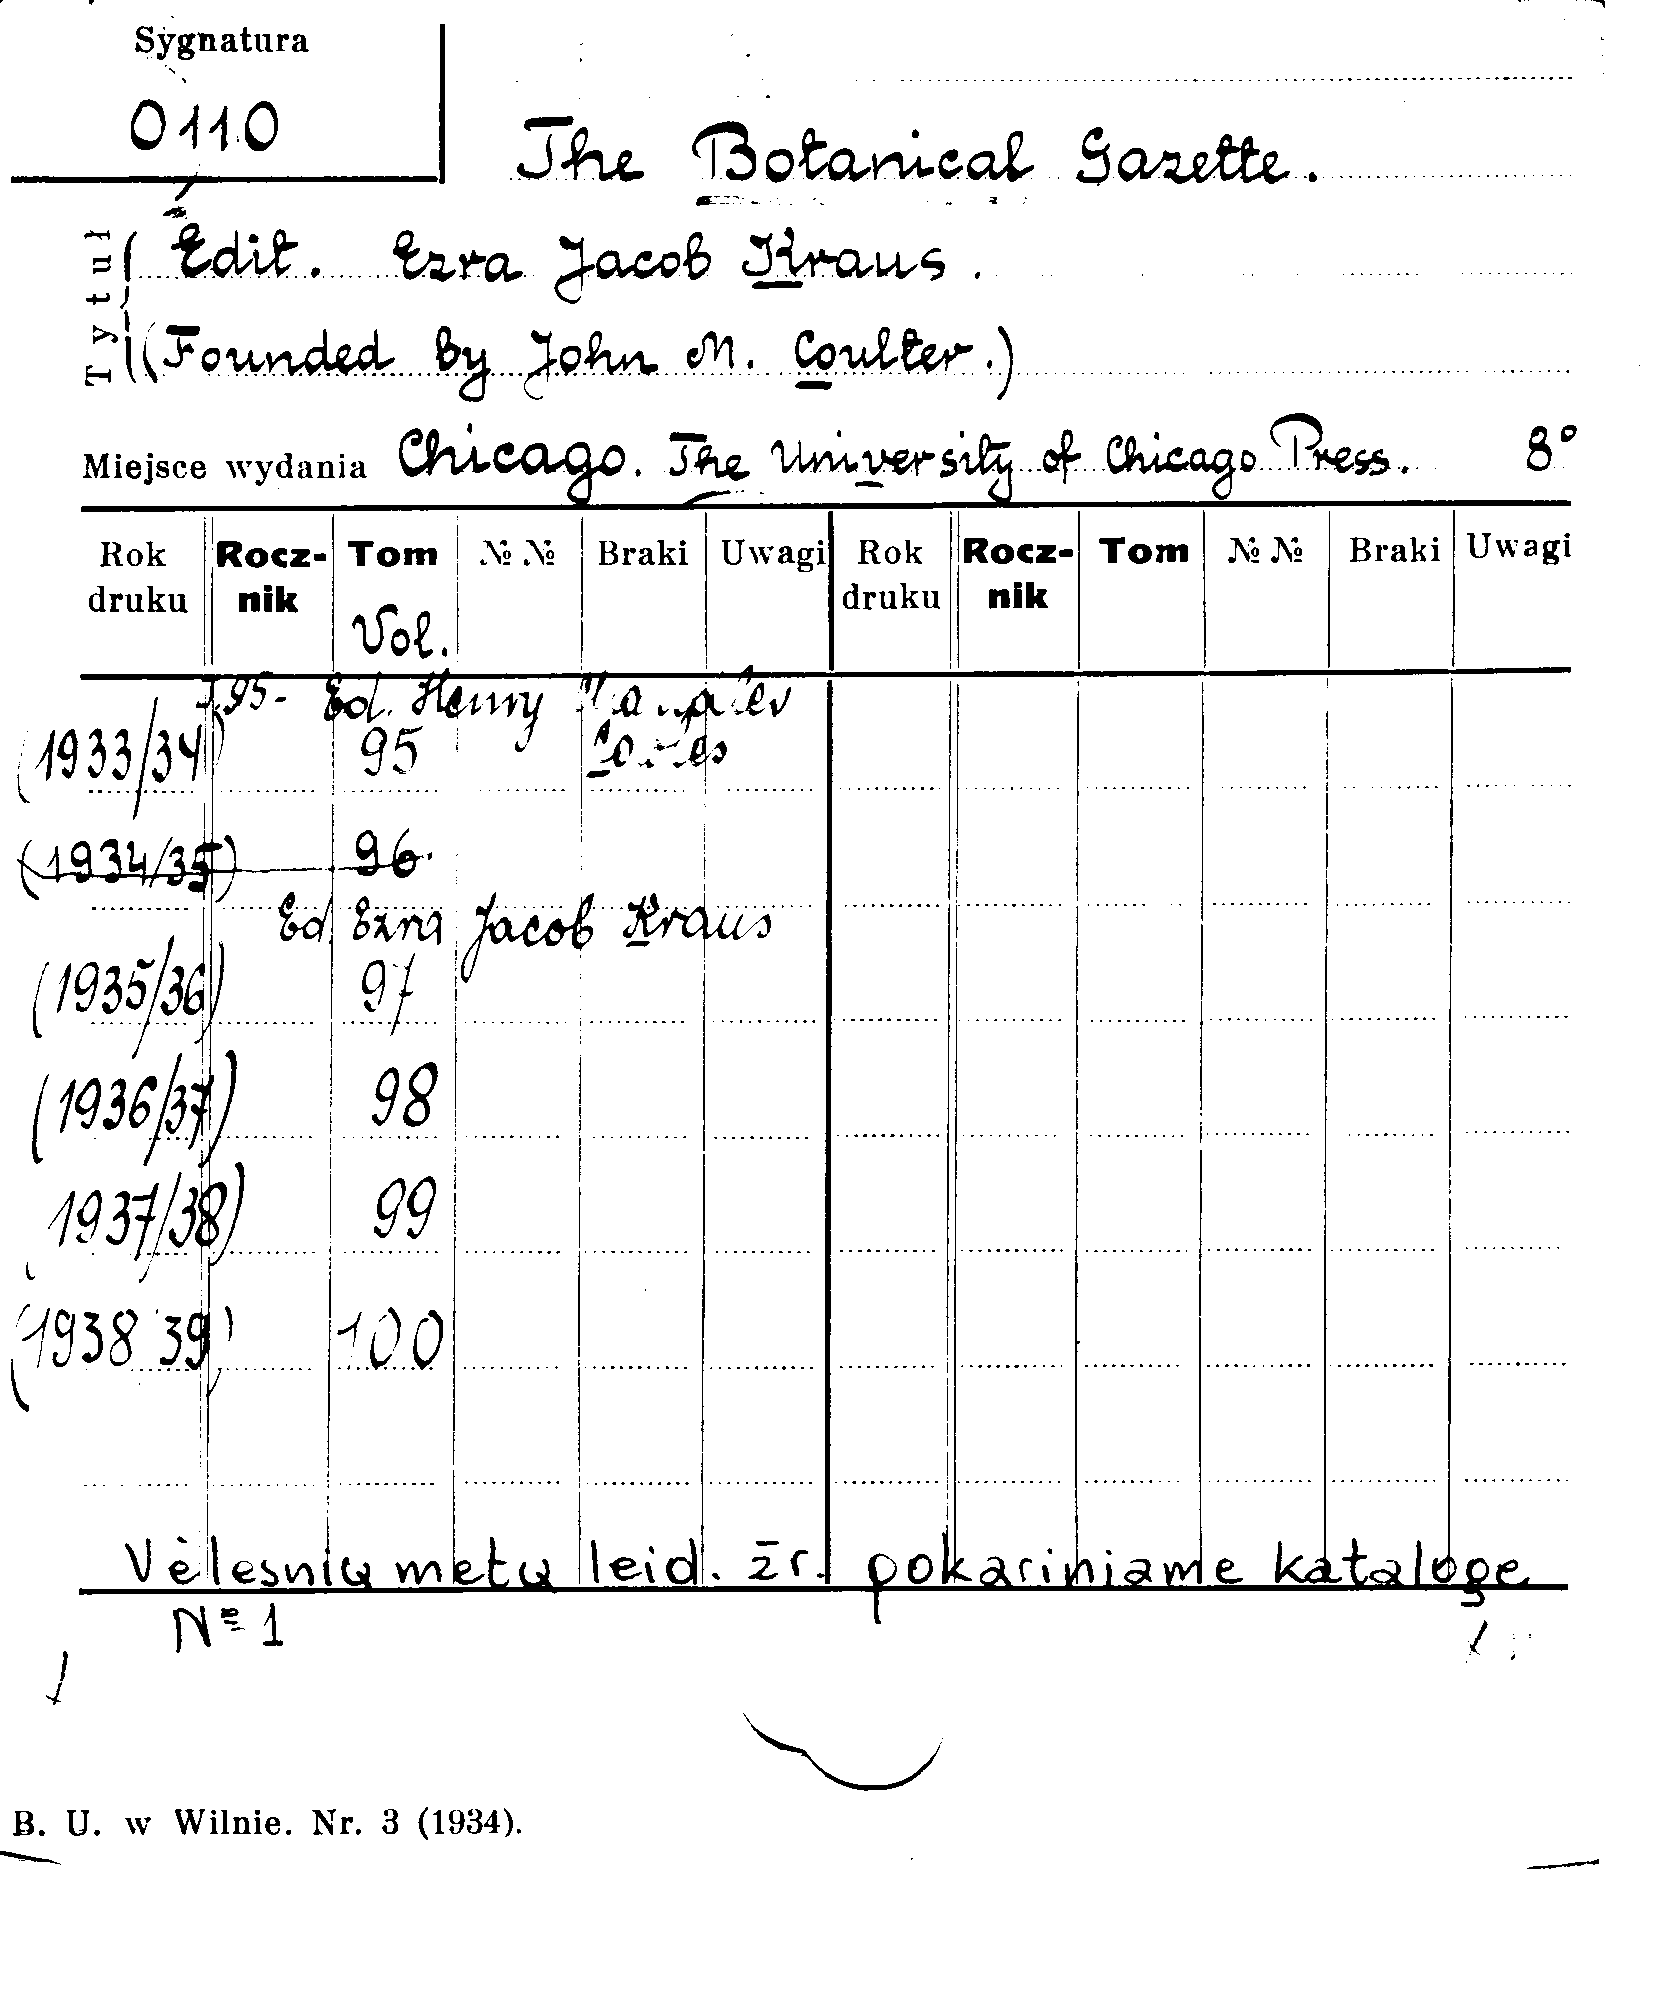 Sygnatura
0110
The Botanical Gazette.
Tytuł
(Edit. Ezra Jacob Kraus.
(Founded by John M. Coulter.)
Miejsce wydania Chicago. The University of Chicago Press. 8°
Rok druku Rocz-nik Tom № № Braki Uwagi Rok druku Rocz-nik Tom № № Braki Uwagi
Vol.
95- Ed. Henry
(1933/34) 95
(1934/35) 96
Ed Ezra Jacob Kraus
(1935/36) 97
(1936/37) 98
1937/38) 99
(1938 39) 100
Vėlesnių metų leid. žr. pokariniame kataloge
№ 1
B. U. w Wilnie. Nr. 3 (1934).